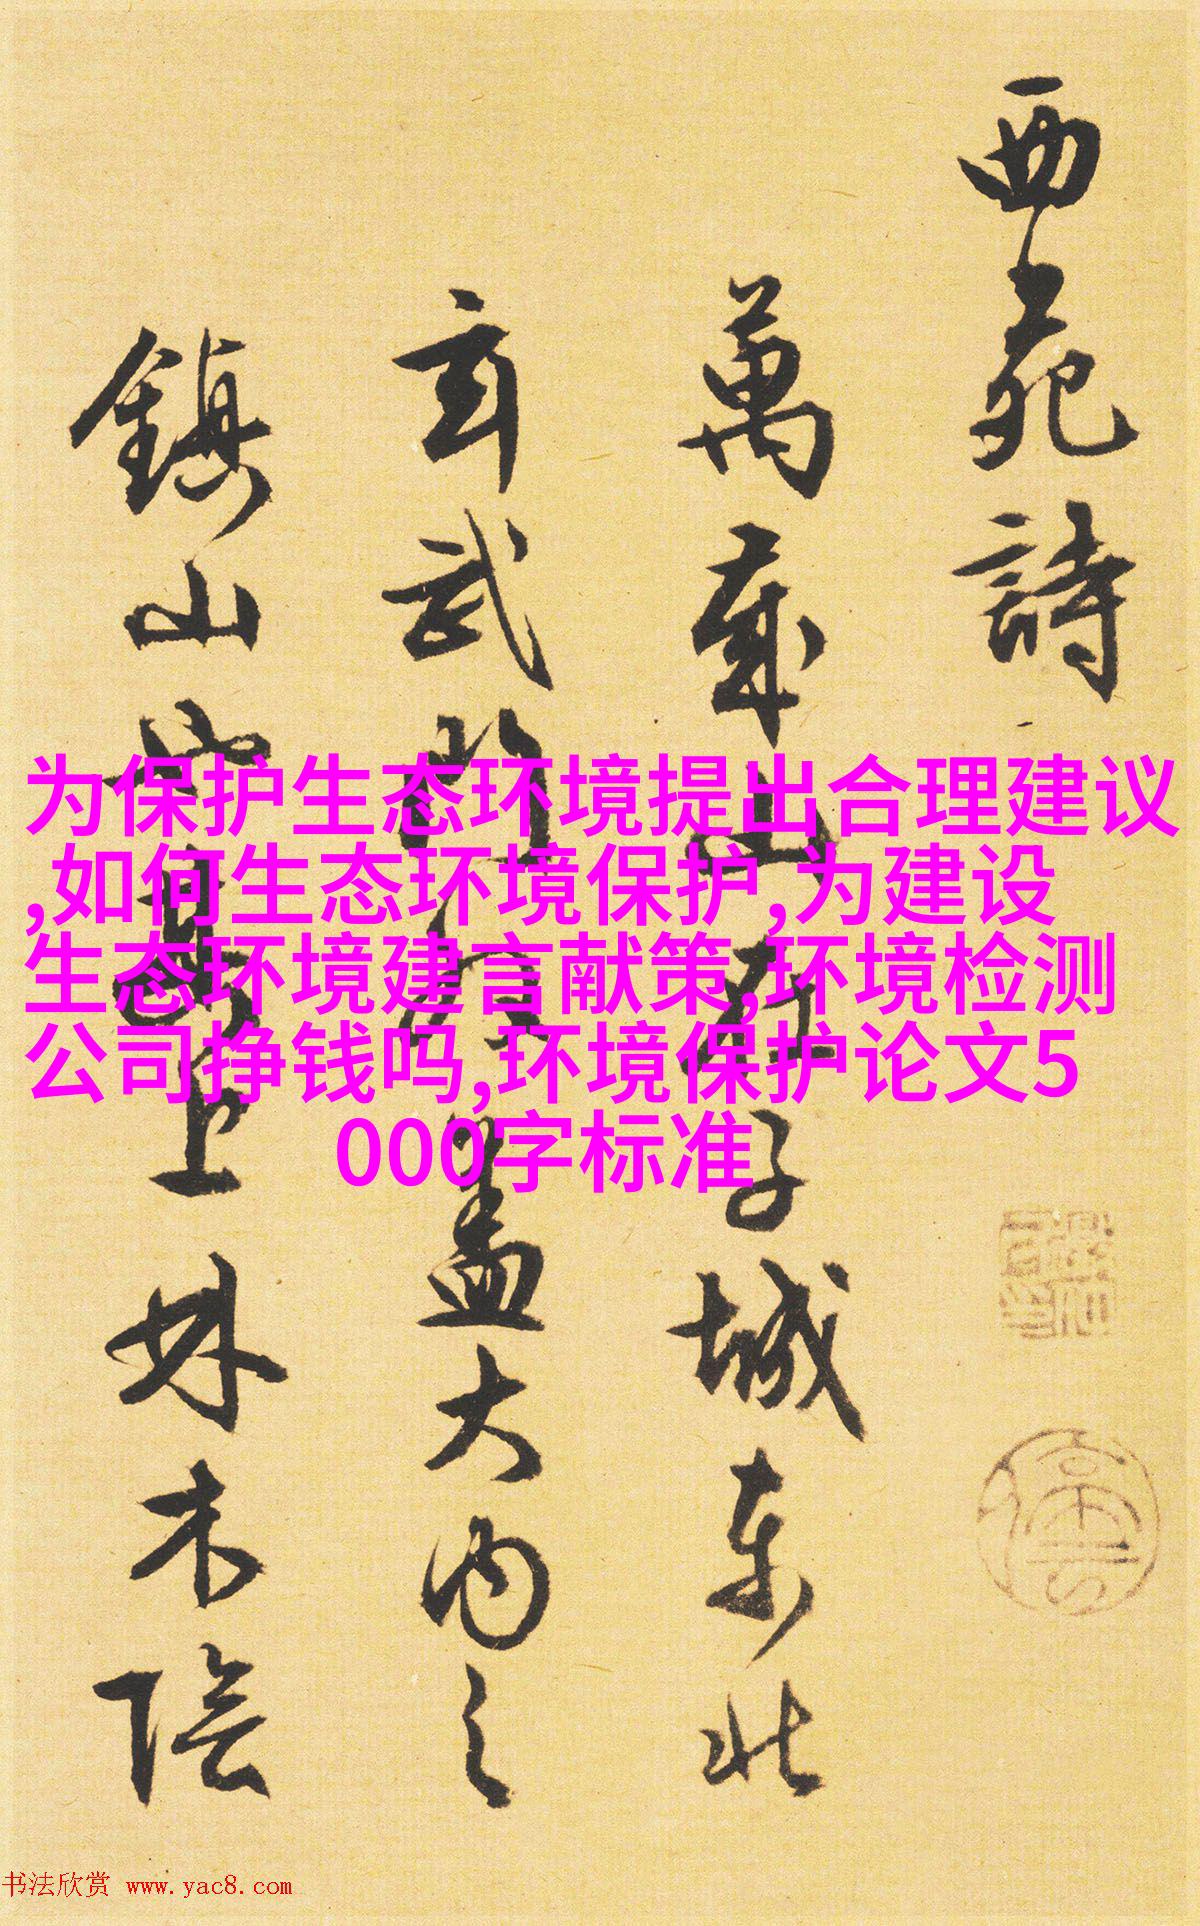 西苑詩
萬歲山在子城東北
玄武門外蓋大内之
鎮山也上林木陰
为保护生态环境提出合理建议
,如何生态环境保护,为建设
生态环境建言献策,环境检测
公司挣钱吗,环境保护论文5
000字标准
书法欣赏 www.yac8.com